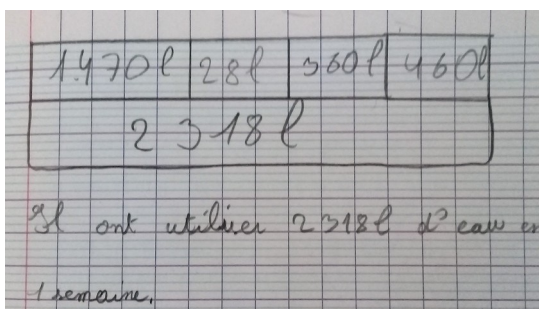 1470l 28l 360l 460l
2 318l
Il ont utiliser 2318l d'eau en
1 semaine.